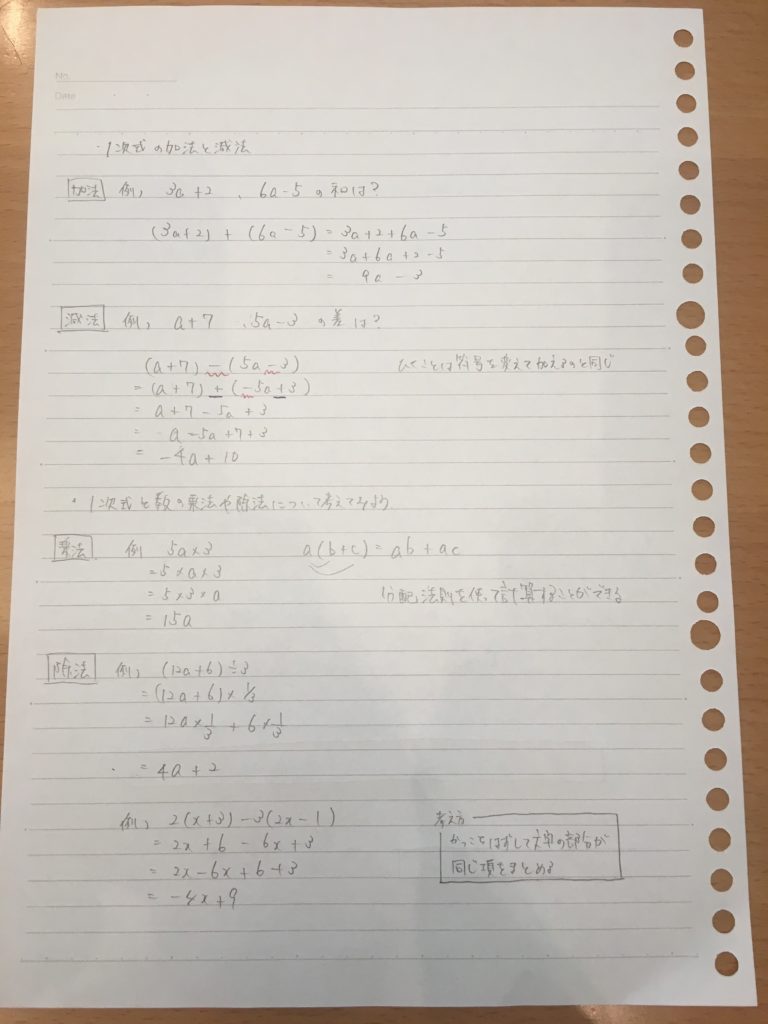 No.
Date
・1次式の加法と減法
加法 例) 3a+2 、 6a-5 の和は?
(3a+2) + (6a-5) = 3a+2+6a-5
= 3a+6a+2-5
= 9a-3
減法 例) a+7 、5a-3 の差は?
(a+7) - (5a-3) ひくことは符号を変えて加えるのと同じ
= (a+7) + (-5a+3)
= a+7-5a+3
= a-5a+7+3
= -4a+10
・1次式と数の乗法や除法について考えてみよう
乗法 例 5a×3 a(b+c) = ab+ac
=5×a×3
=5×3×a 分配法則を使って計算することができる
= 15a
除法 例) (12a+6)÷3
=(12a+6)×1/3
= 12a×1/3 + 6×1/3
= 4a+2
例) 2(x+3) -3(2x-1) 考え方
= 2x+6-6x+3 かっこをはずして文字の部分が
= 2x-6x+6+3 同じ項をまとめる
= -4x+9